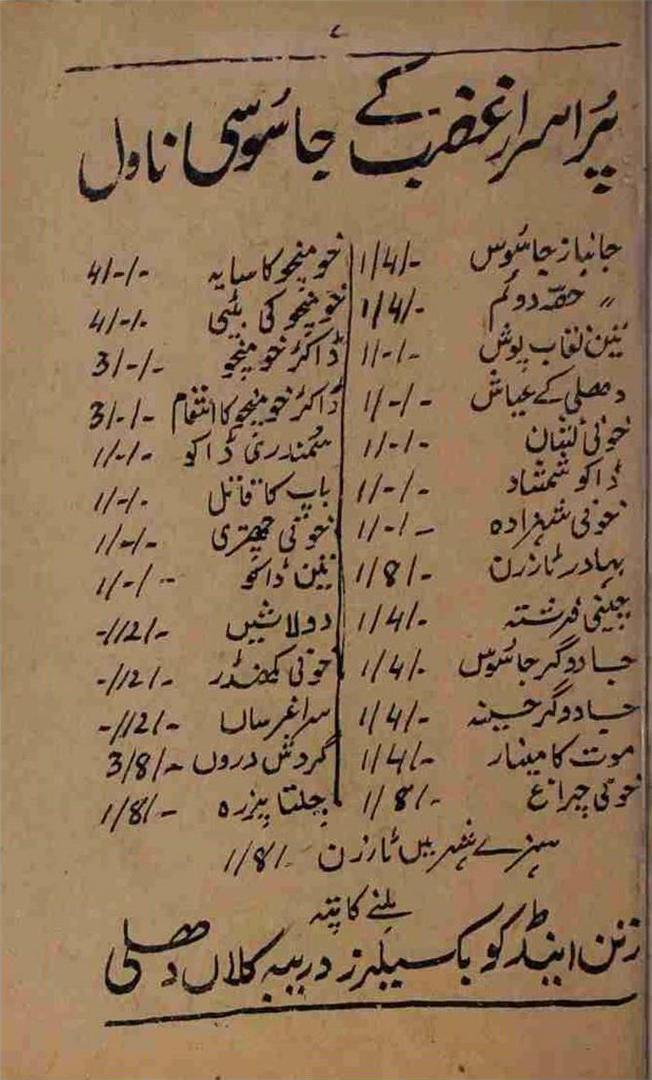 ۷
پُراسرار غضب کے جاسُوسی ناول
جانباز جاسُوس 1/4/-
〃 حصّہ دوئم 1/4/-
تین نقاب پوش 1/-/-
دھلی کے عیاش 1/-/-
خونی 1/-/-
ڈاکو شمشاد 1/-/-
خونی شہزادہ 1/-/-
بہادر ٹارزن 1/8/-
فرشتہ 1/4/-
جادوگر جاسُوس 1/4/-
جادوگر حسینہ 1/4/-
موت کا مینار 1/4/-
خونی چراغ 1/8/-
فومنچو کا سایہ 4/-/-
فومنچو کی بیٹی 4/-/-
ڈاکٹر فومنچو 3/-/-
ڈاکٹر فومنچو کا انتقام 3/-/-
سمندری ڈاکو 1/-/-
باپ کا قاتل 1/-/-
خونی چھتری 1/-/-
تین ڈاکو 1/-/-
دو لاشیں -/12/-
خونی کھنڈر -/12/-
سراغرساں -/12/-
گردش دوراں 3/8/-
چلتا پرزہ 1/8/-
سنہرے شہر میں ٹارزن 1/8/-
ملنے کا پتہ
رتن اینڈ کو بکسیلرز دریبہ کلاں دھلی